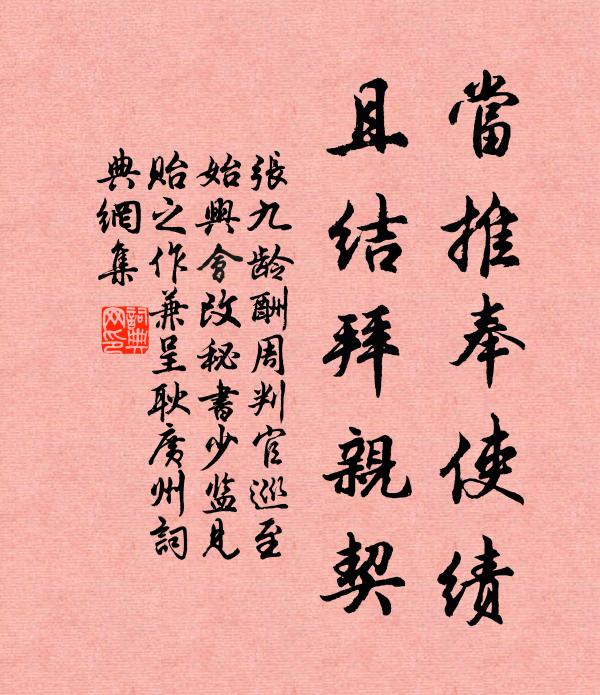 當推奉使績
且結拜親契
張九齡酬周判官巡至
始興會改秘書少監見
貽之作兼呈耿廣州詞
典網集
詞典
网印